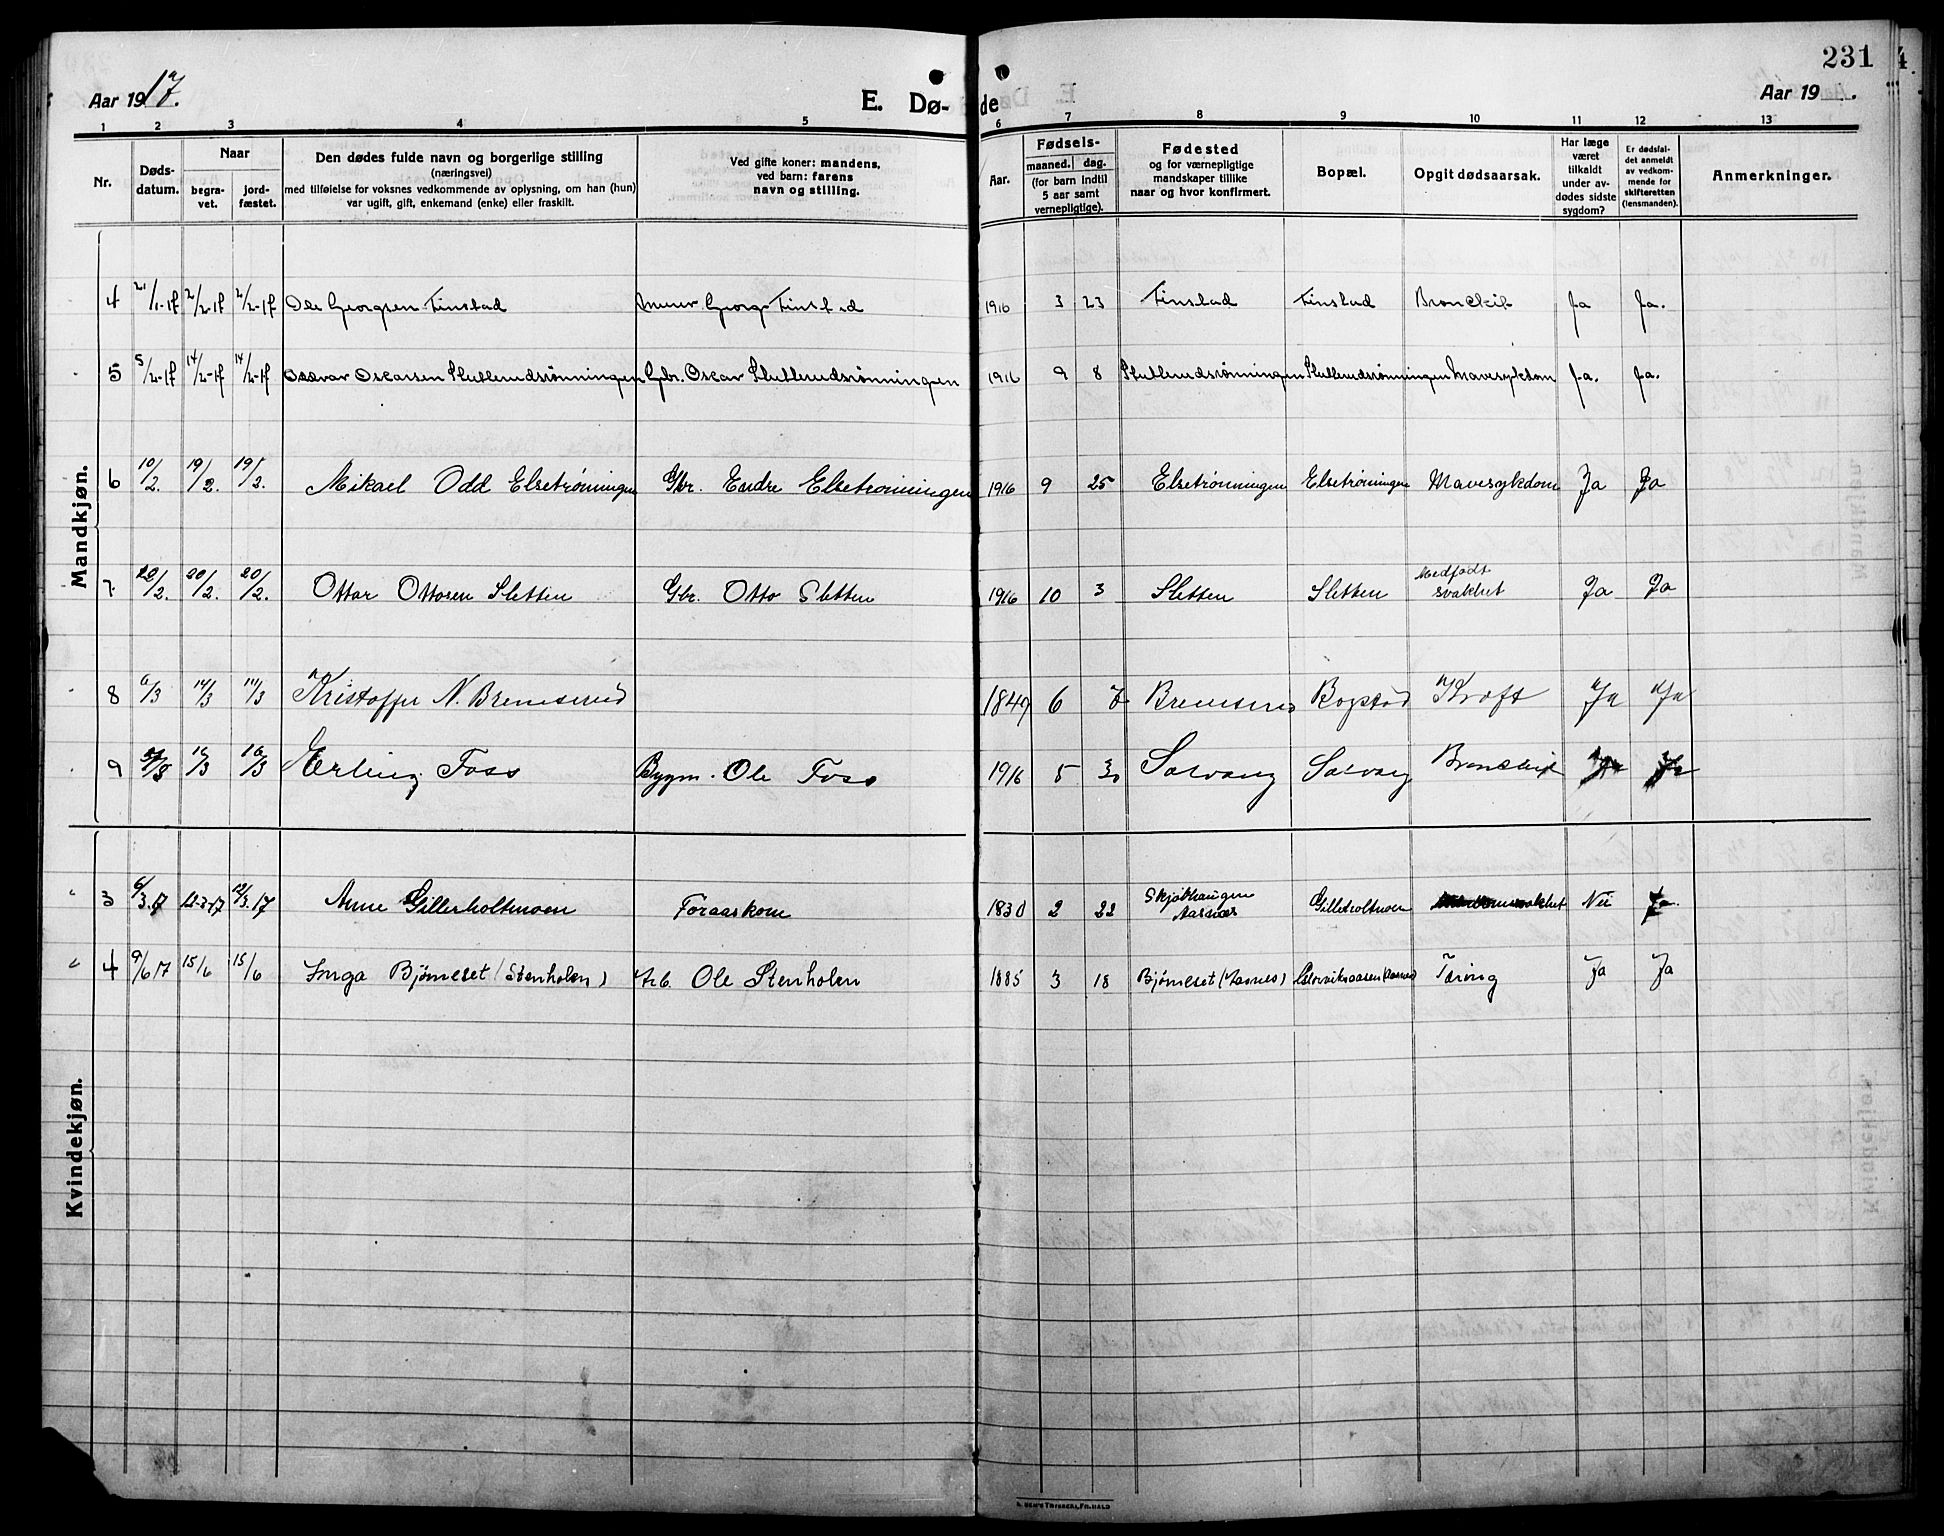 231
Aar 1917.
E. Dø-
de
Aar 19 .
1 2 3 4 5 6 7 8 9 10 11 12 13
Nr.
Døds-
datum.
Naar
begra-
vet.
jord-
fæstet.
Den dødes fulde navn og borgerlige stilling
(næringsvei)
med tilføielse for voksnes vedkommende av oplysning, om han (hun)
var ugift, gift, enkemand (enke) eller fraskilt.
Ved gifte koner: mandens,
ved barn: farens
navn og stilling.
Aar.
Fødsels-
maaned. dag.
(for barn indtil
5 aar samt
vernepligtige).
Fødested
og for værnepligtige
mandskaper tillike
naar og hvor konfirmert.
Bopæl.
Opgit dødsaarsak.
Har læge
været
tilkaldt
under av-
dødes sidste
sygdom?
Er dødsfal-
det anmeldt
av vedkom-
mende for
skifteretten
(lensmanden).
Anmerkninger.
Mandkjøn.
4 21/1-17 2/2-17 2/2-17 Ole Georgsen Finstad Murer Georg Finstad 1916 3 23 Finstad Finstad Bronckit Ja Ja.
5 5/2-17 14/2-17 14/2-17 Osvar Oscarsen Skullerudsrønningen Gbr. Oscar Skullerudsrønningen 1916 9 8 Skullerudsrønningen Skullerudsrønningen Mavesykdom Ja. Ja.
6 10/2. 19/2. 19/2. Mikael Odd Elsetrønningen Gbr. Endre Elsetrønningen 1916 9 25 Elsetrønningen Elsetrønningen Mavesykdom Ja Ja
7. 20/2. 20/2. Ottar Ottosen Sletten Gbr. Otto Sletten 1916 10 3 Sletten Sletten Medfødt
svakhet Ja Ja
8 6/3 14/3 14/3 Kristoffer N. Bremserud 1849 6 7 Bremserud Bogstad Kræft Ja Ja
9 16/3 16/3 Erling Foss Bygm. Ole Foss 1916 5 30 Solvang Solvang Bronckit Ja Ja
Kvindekjøn.
3 6/3.17 12-3-17 12/3.17 Anne Gillerholtmoen Foraaskone 1830 2 22 Skjølhaugen
Aasnes Gilleholtmoen Nei Ja
4 9/6 17 15/6 15/6 Inga Bjørneset (Stenholen) Arb. Ole Stenholen 1885 3 18 Bjørneset (Aasnes) Tæring Ja Ja